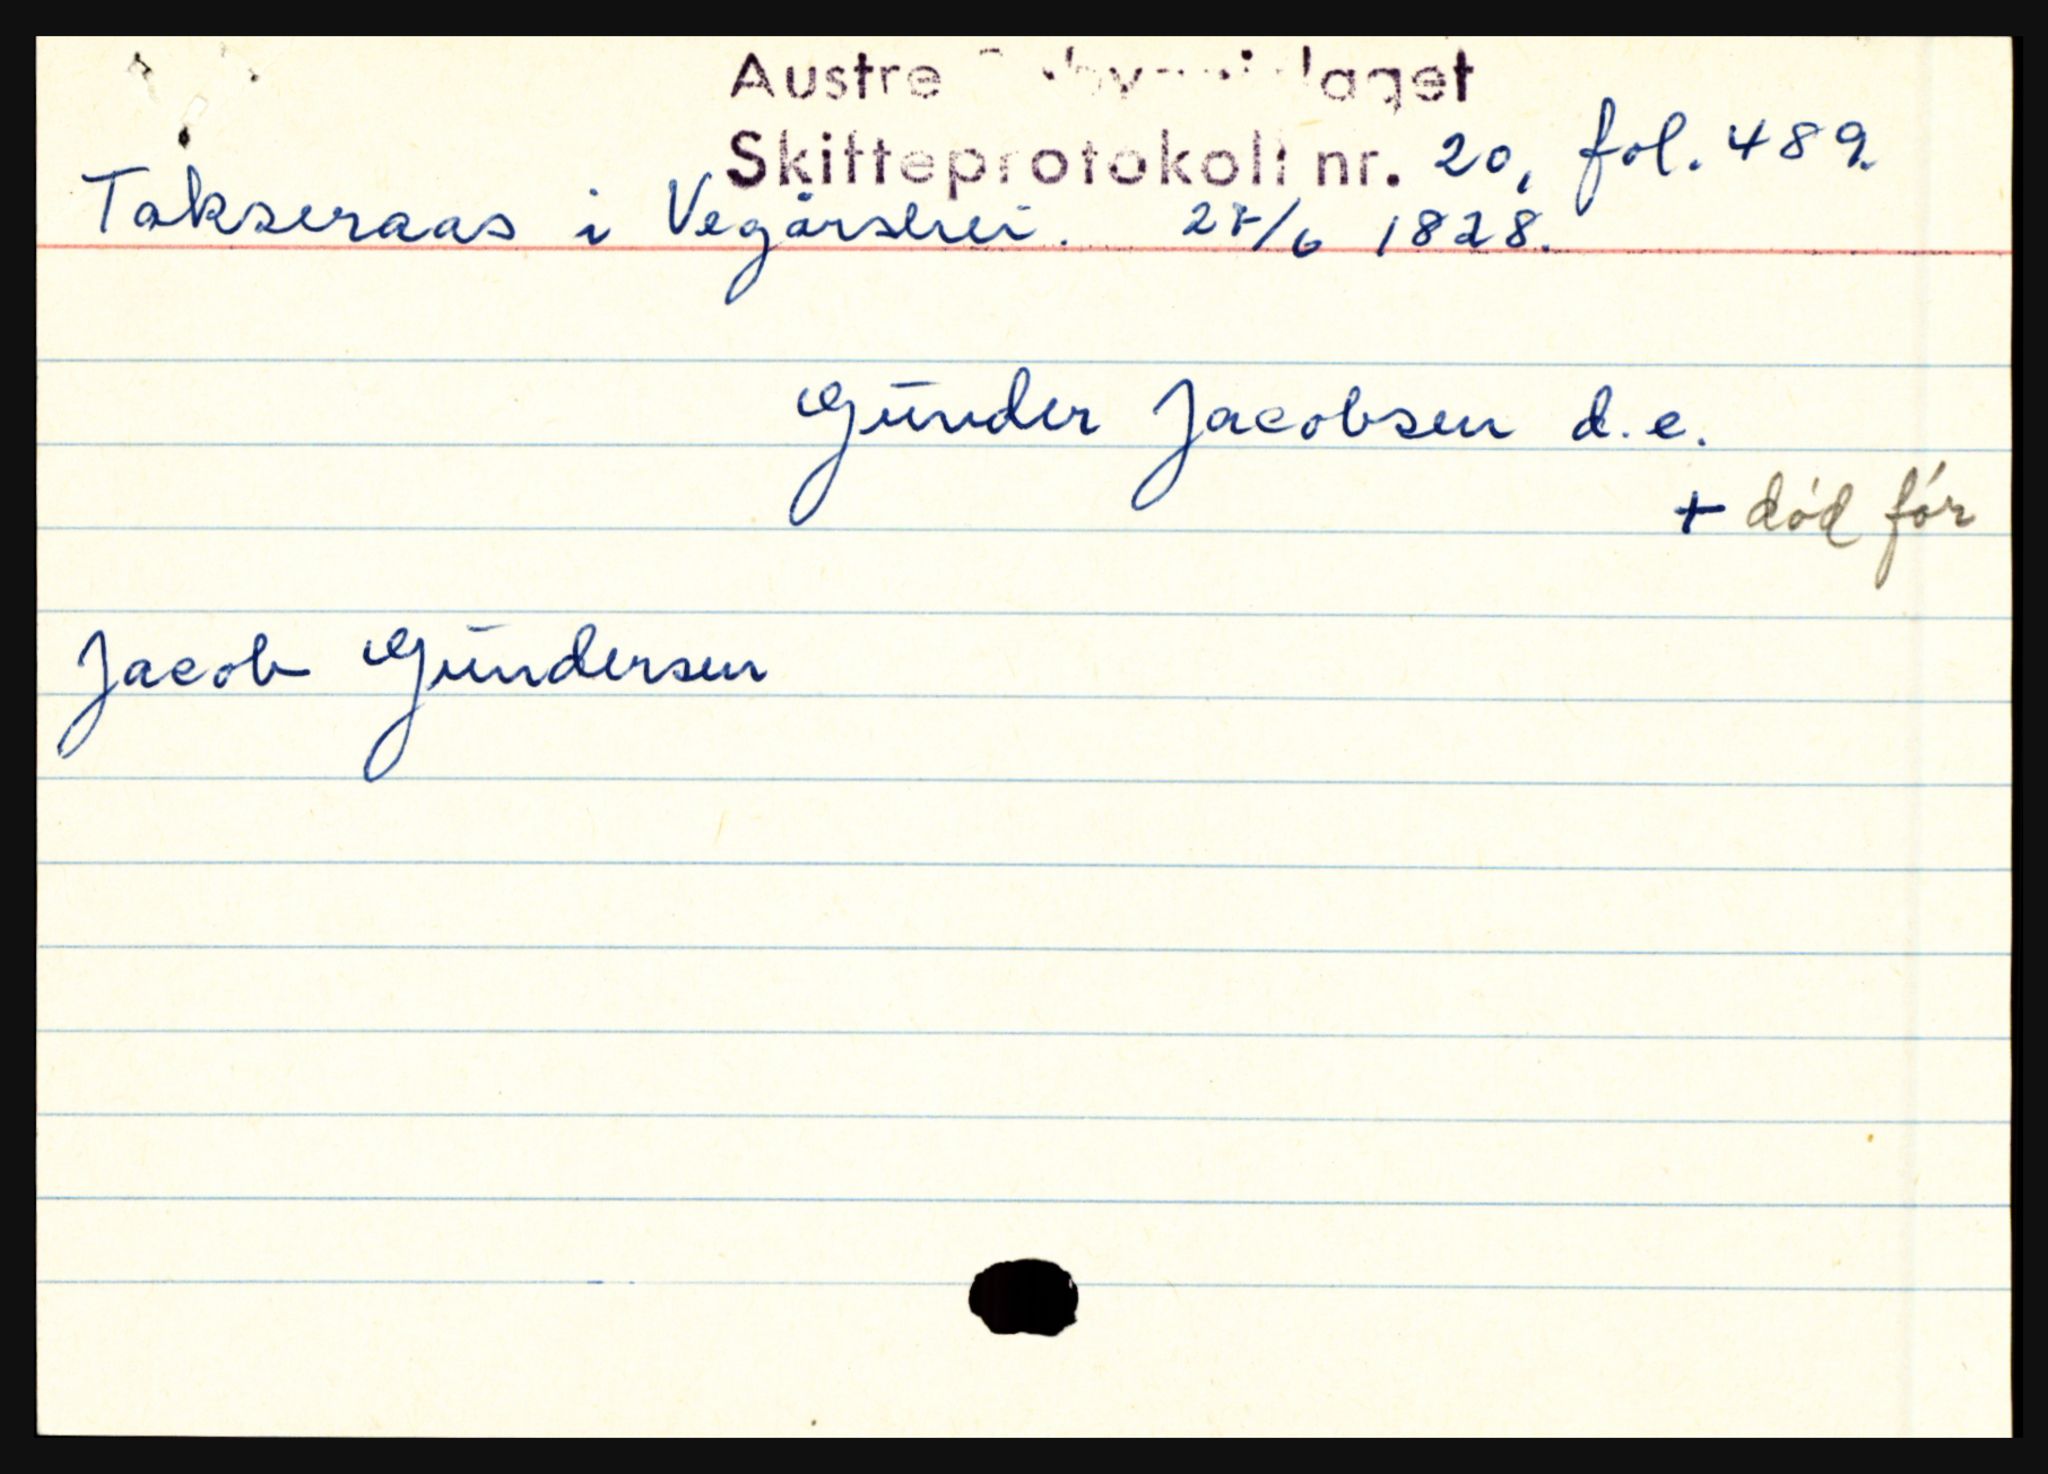 Austre laget
Skifteprotokoll nr. 20, fol. 489.
Takseraas i Vegårshei. 1828.
Gunder Jacobsen d.e.
+ død før
Jacob Gundersen